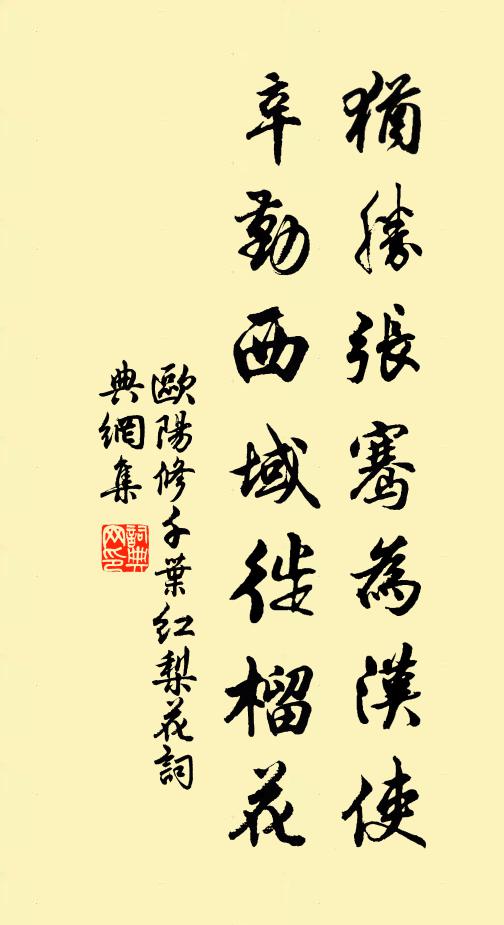 猶勝張騫為漢使
辛勤西域徙榴花
歐陽修千葉紅梨花詞
典網集
詞典
网印